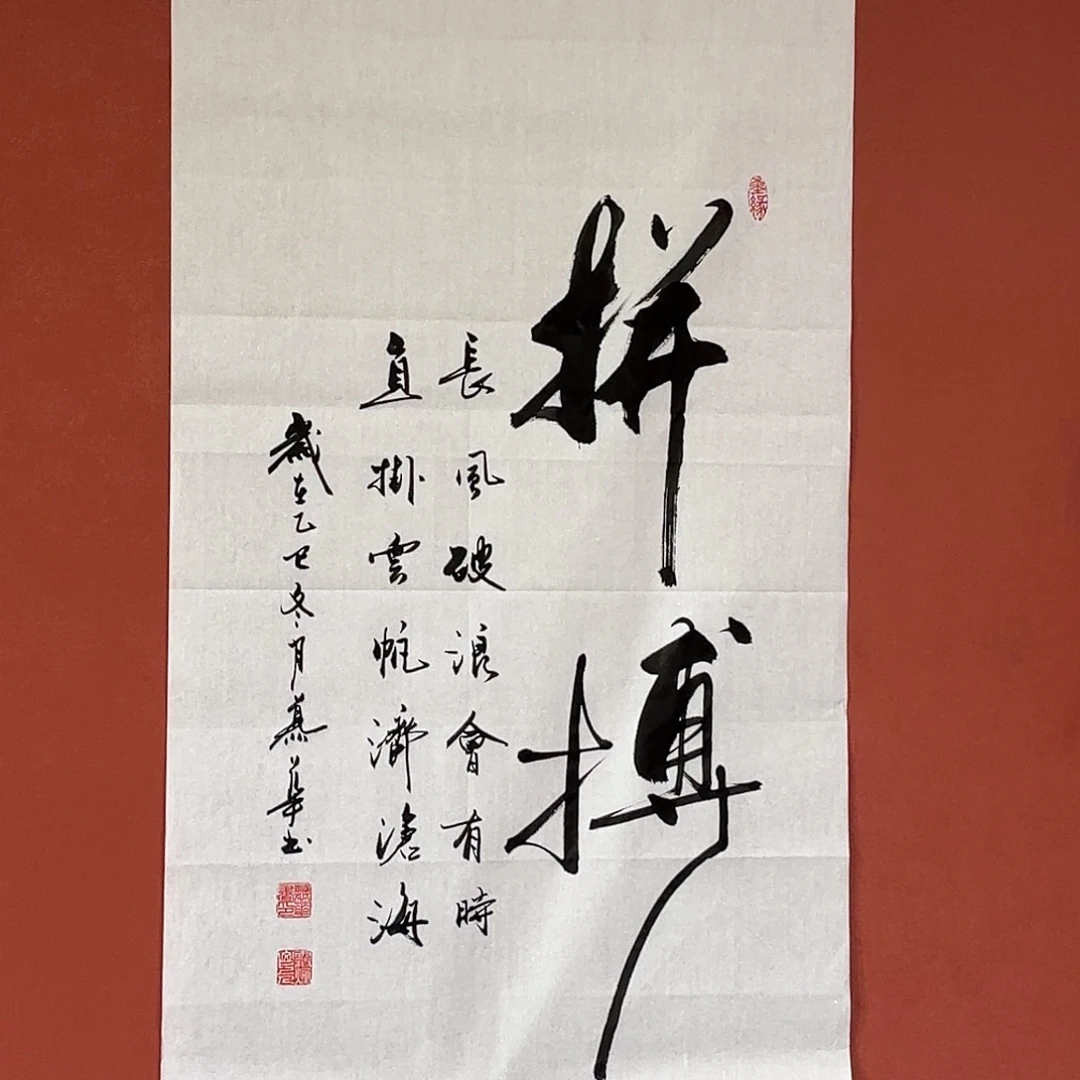 拼搏
長風破浪會有時
直掛雲帆濟滄海
歲在乙巳冬月慕華書